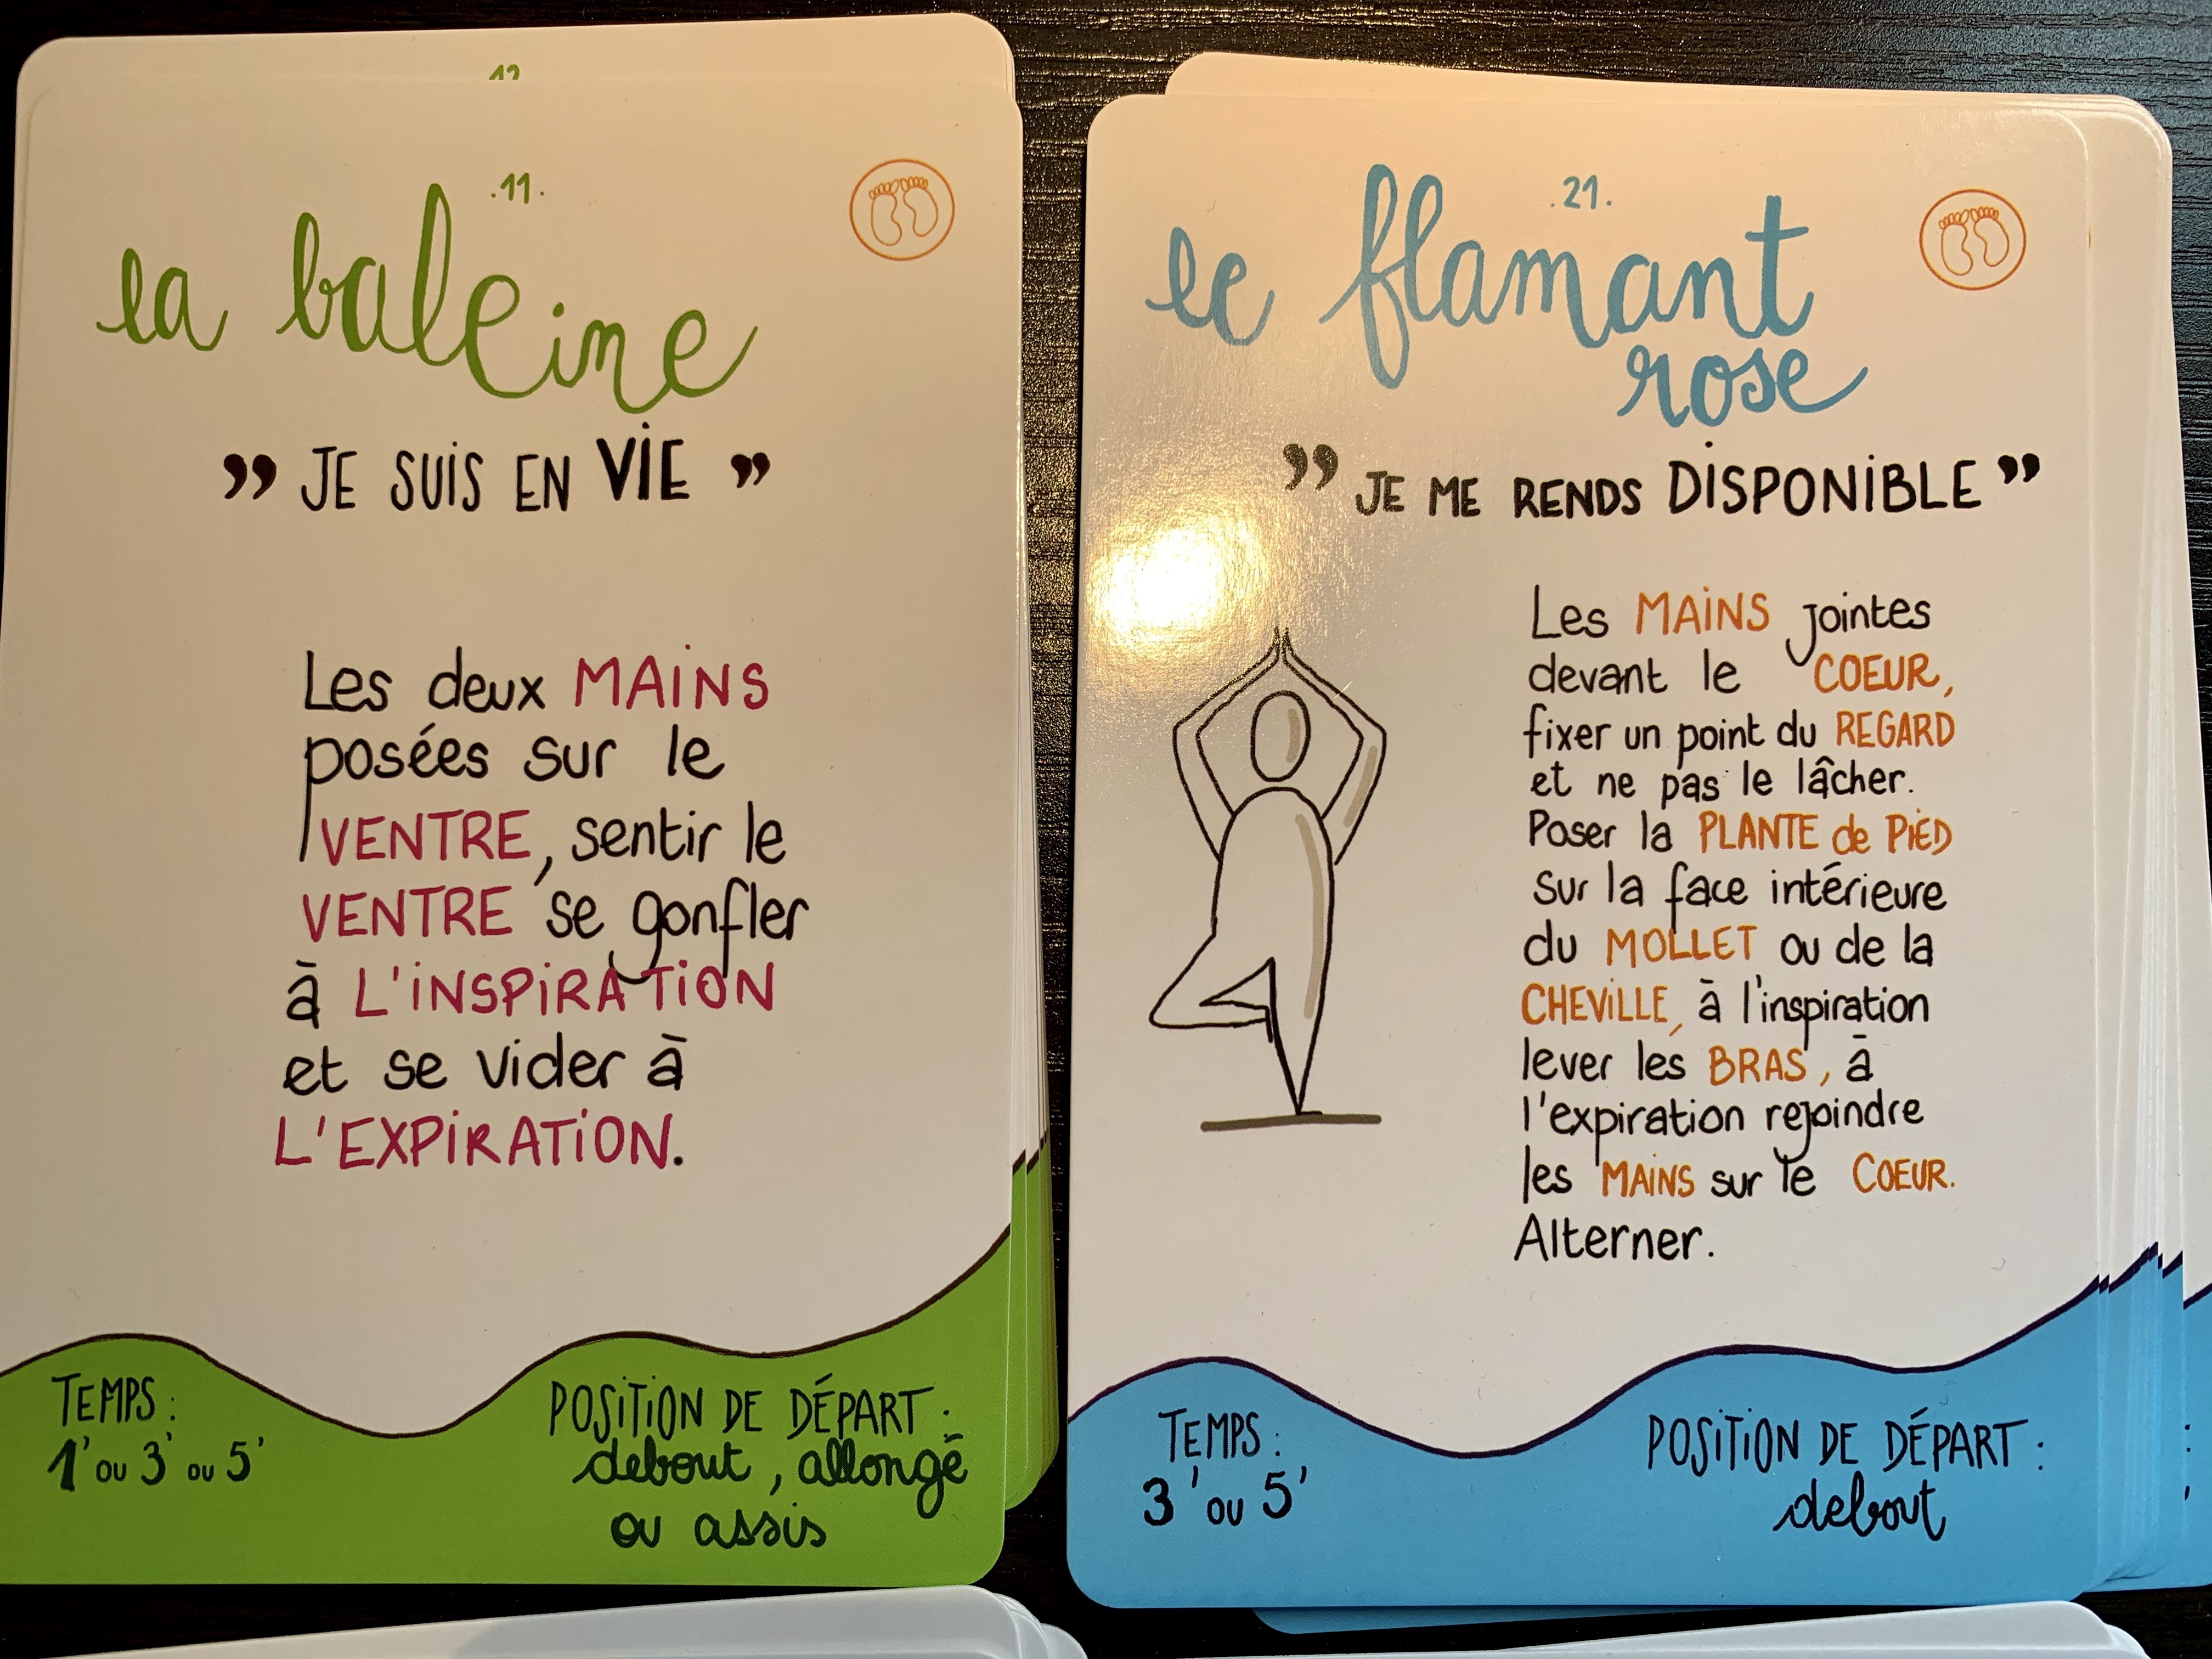 12
.11.
la baleine
” JE SUIS EN VIE ”
Les deux MAINS
posées sur le
VENTRE, sentir le
VENTRE se gonfler
à L'INSPIRATION
et se vider à
L'EXPIRATION.
TEMPS :
1' ou 3' ou 5'
POSITION DE DÉPART :
debout, allongé
ou assis
.21.
le flamant
rose
” JE ME RENDS DISPONIBLE ”
Les MAINS jointes
devant le COEUR,
fixer un point du REGARD
et ne pas le lâcher.
Poser la PLANTE de PIED
sur la face intérieure
du MOLLET ou de la
CHEVILLE, à l'inspiration
lever les BRAS, à
l'expiration rejoindre
les MAINS sur le COEUR.
Alterner.
TEMPS :
3' ou 5'
POSITION DE DÉPART :
debout